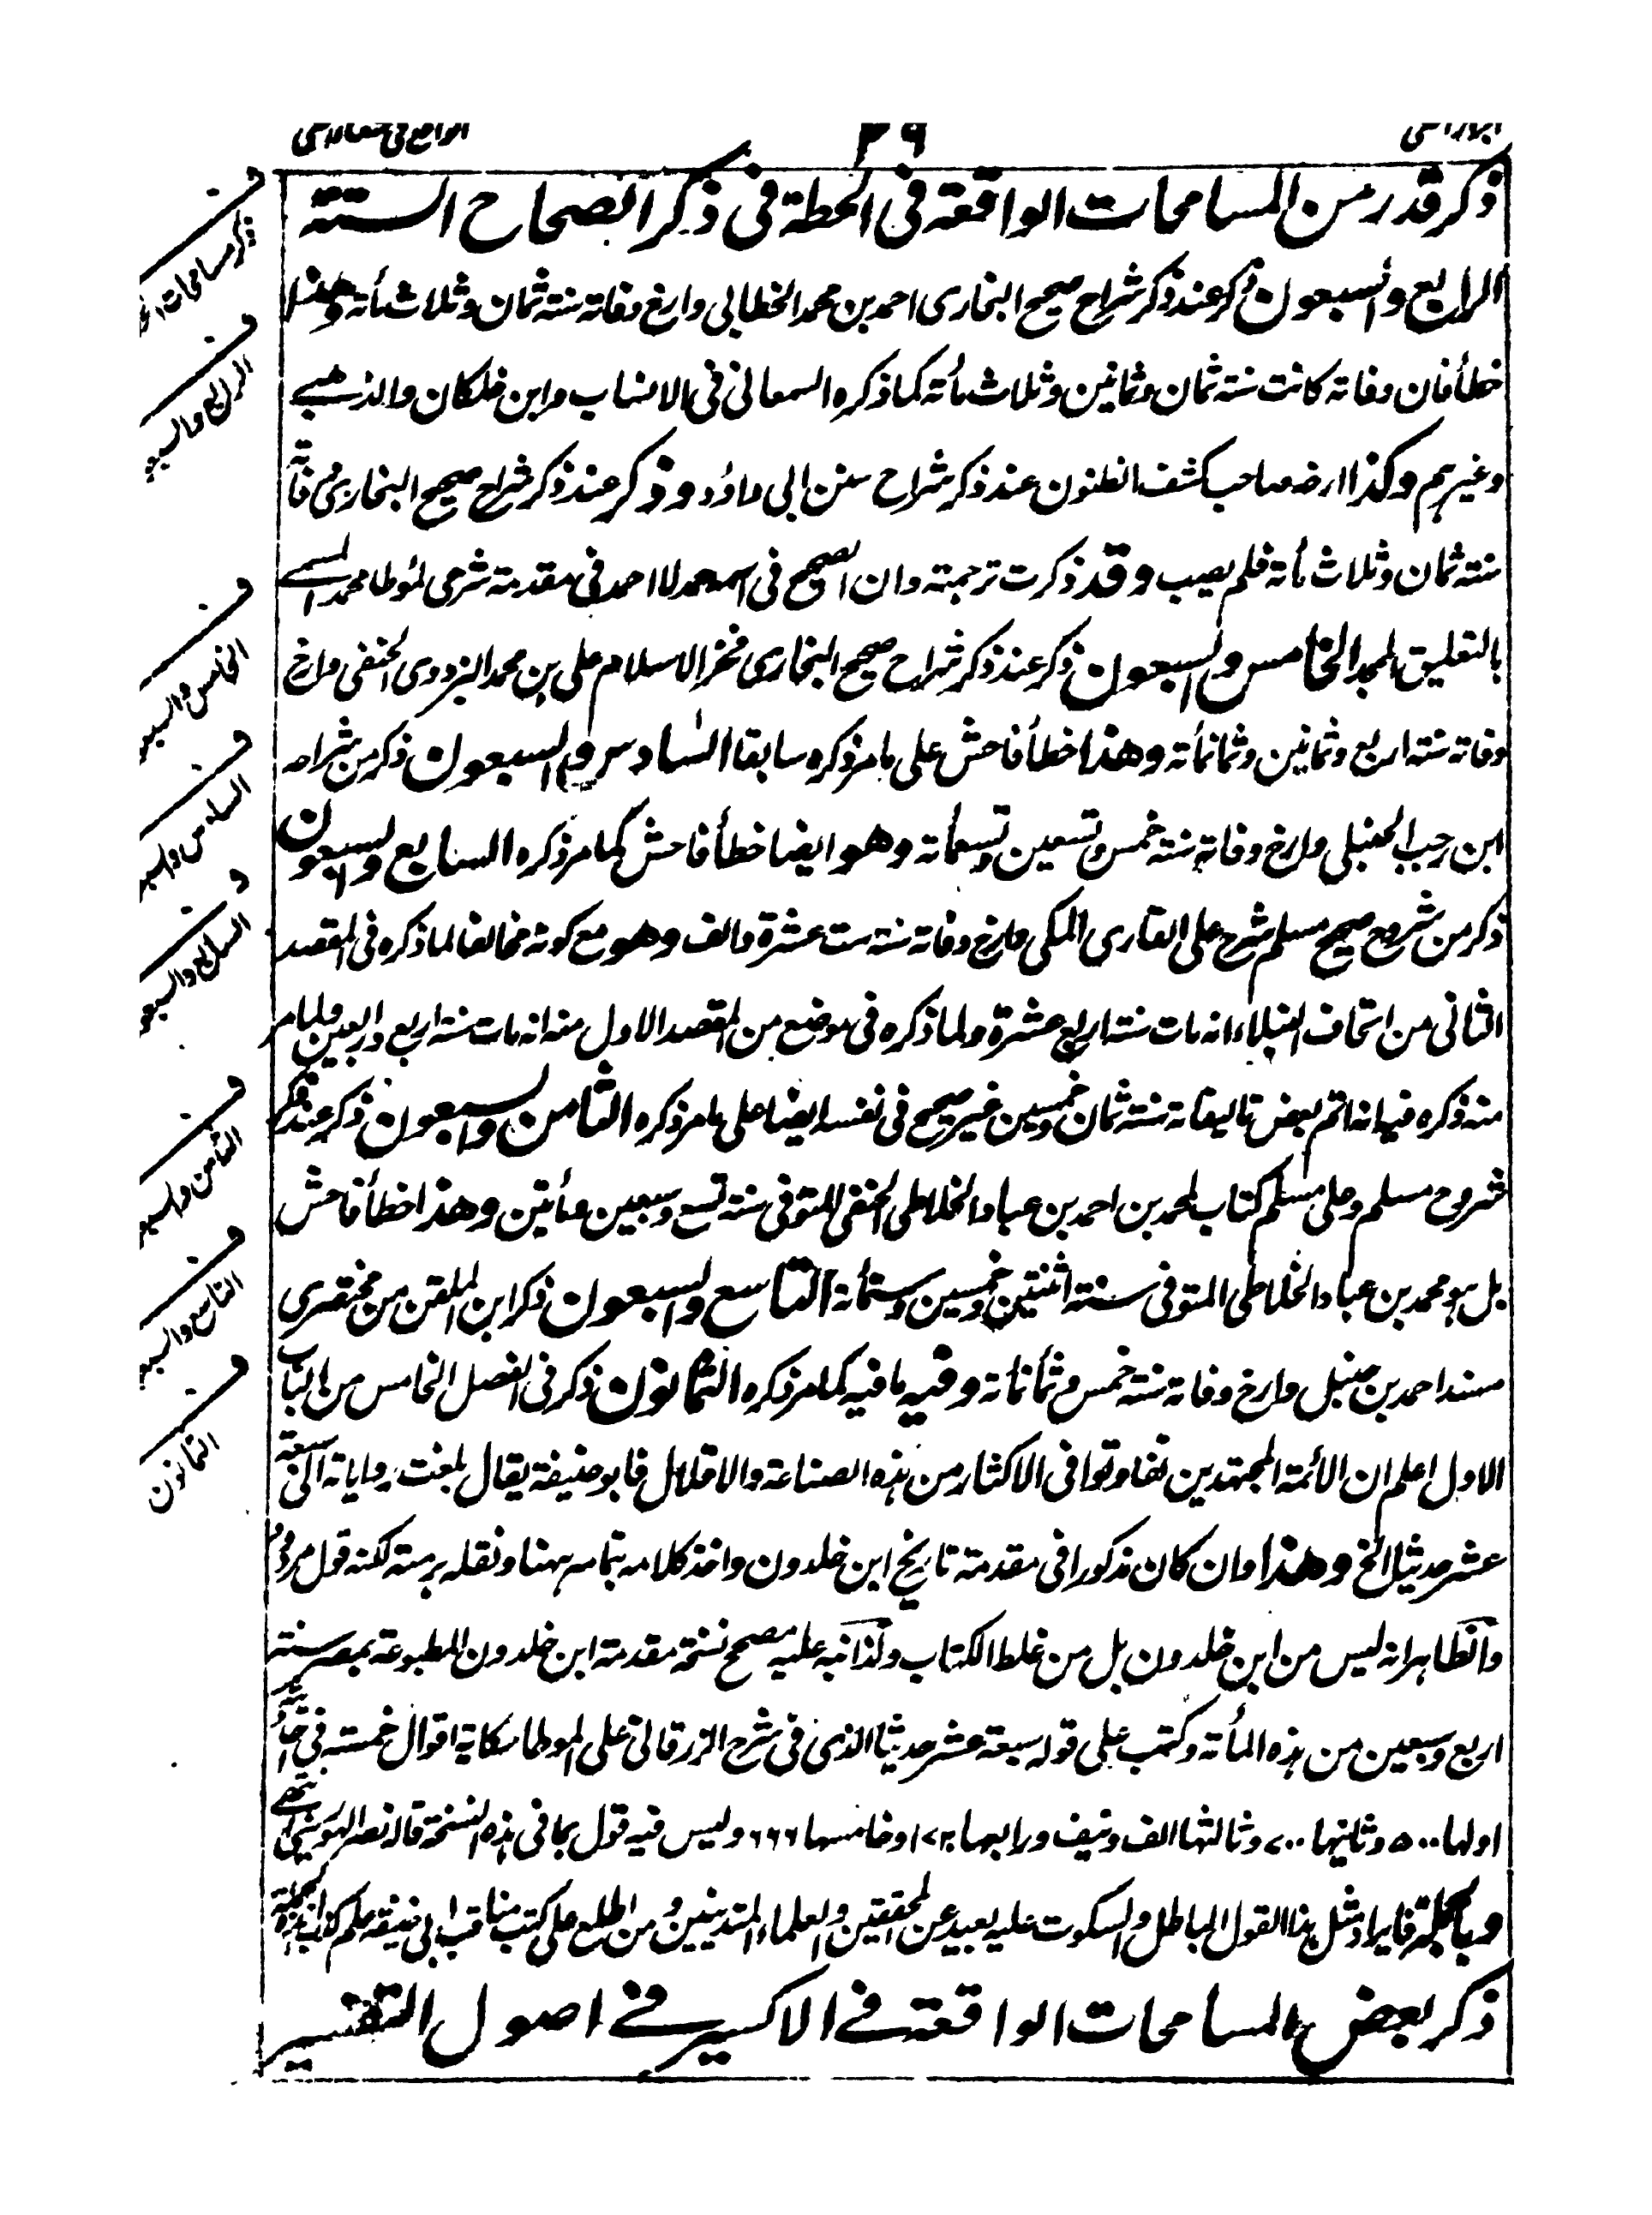 ٢٩
ذكر قدر من المسامحات الواقعة في الحطة في ذكر الصحاح الستة
الرابع والسبعون ذكر عند ذكر شراح صحيح البخاري احمد بن محمد الخطابي وارخ وفاته سنة ثمان وثلاث مأته وهذا
خطأ فان وفاته كانت سنة ثمان وثمانين وثلاث مأته كما ذكره السمعاني في الانساب وابن خلكان والذهبي
وغيرهم وكذا ارخه صاحب كشف الظنون عند ذكر شراح سنن ابي داود وذكر عند ذكر شراح صحيح البخاري وفاته
سنة ثمان وثلاث مأته فلم يصب وقد ذكرت ترجمته وان الصحيح في اسمه حمد لا احمد في مقدمة شرحي لموطا محمد المسمى
بالتعليق الممجد الخامس والسبعون ذكر عند ذكر شراح صحيح البخاري فخر الاسلام علي بن محمد البزدوي الحنفي وارخ
وفاته سنة اربع وثمانين وثمانمأته وهذا خطأ فاحش على ما مر ذكره سابقا السادس والسبعون ذكر من شراحه
ابن رجب الحنبلي وارخ وفاته سنة خمس وتسعين وتسعمأته وهو ايضا خطأ فاحش كما مر ذكره السابع والسبعون
ذكر من شروح صحيح مسلم شرح علي القاري المكي وارخ وفاته سنة ست عشرة والف وهو مع كونه مخالفا لما ذكره في المقصد
الثاني من اتحاف النبلاء انه مات سنة اربع عشرة ولما ذكره في موضع من المقصد الاول منه انه مات سنة اربع واربعين ولما مر
منه ذكره فيه انه اتم بعض تاليفاته سنة ثمان وخمسين غير صحيح في نفسه ايضا على ما مر ذكره الثامن والسبعون ذكر عند ذكر
شروح مسلم وعلى مسلم كتاب لمحمد بن احمد بن عباد الخلاطي الحنفي المتوفى سنة تسع وسبعين ومأتين وهذا خطأ فاحش
بل هو محمد بن عباد الخلاطي المتوفى سنة اثنتين وخمسين وستمأته التاسع والسبعون ذكر ابن الملقن من مختصري
مسند احمد بن حنبل وارخ وفاته سنة خمس وثمانمأته وفيه ما فيه كما مر ذكره الثمانون ذكر في الفصل الخامس من الباب
الاول اعلم ان الأئمة المجتهدين تفاوتوا في الاكثار من هذه الصناعة والاقلال فابو حنيفة يقال بلغت رواياته الى سبعة
عشر حديثا الخ وهذا وان كان مذكورا في مقدمة تاريخ ابن خلدون واخذ كلامه بتمامه ههنا ونقله برمته لكنه قول مردود
والظاهر انه ليس من ابن خلدون بل من غلط الكتاب ولذا نبه عليه مصحح نسخة مقدمة ابن خلدون المطبوعة بمصر سنة
اربع وسبعين من هذه المأته وكتب على قوله سبعة عشر حديثا الذي في شرح الزرقاني على الموطا حكاية اقوال خمسة في احاديثه
اولها ٥٠٠ وثانيها ٧٠٠ وثالثها الف ونيف ورابعها ١٧٢٠ وخامسها ٦٦٦ وليس فيه قول بما في هذه النسخة قاله نصر الهوريني انتهى
وبالجملة فايراد مثل هذا القول الباطل والسكوت عليه بعيد عن المحققين والعلماء المتدينين ومن اطلع على كتب مناقب ابي حنيفة علم
ذكر بعض المسامحات الواقعة في الاكسير في اصول التفسير
ذكر مسامحات
الرابع والسبعو
الخامس والسبعو
السادس والسبعو
السابع والسبعو
الثامن والسبعو
التاسع والسبعو
الثمانون